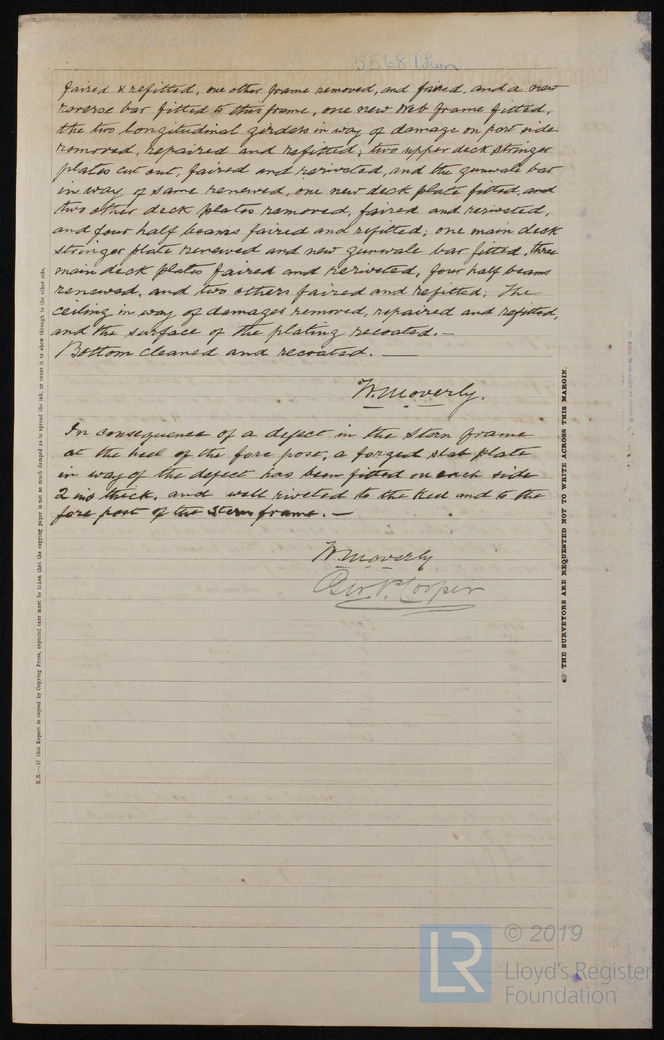 faired & refitted, one other frame removed, and faired, and a new
reverse bar fitted to this frame, one new web frame fitted,
the two longitudinal girders in way of damage on port side
removed, repaired and refitted; two upper deck stringer
plates cut out, faired and reriveted, and the gunwale bar
in way of same renewed, one new deck plate fitted, and
two other deck plates removed, faired and reriveted,
and four half beams faired and refitted; one main deck
stringer plate renewed and new gunwale bar fitted, three
main deck plates faired and reriveted, four half beams
renewed, and two others faired and refitted; The
ceiling in way of damages removed, repaired and refitted,
and the surface of the plating recoated.—
Bottom cleaned and recoated. —
W. Moverly.
In consequence of a defect in the stern frame
at the heel of the fore post, a forged slab plate
in way of the defect has been fitted on each side
2 ins thick, and well riveted to the keel and to the
fore post of the stern frame. —
W. Moverly
Geo. P. Cooper
N.B.—If this Report is copied by Copying Press, especial care must be taken that the copying paper is not so much damped as to spread the ink, or cause it to show through to the other side.
THE SURVEYORS ARE REQUESTED NOT TO WRITE ACROSS THIS MARGIN.
LR
© 2019
Lloyd's Register
Foundation